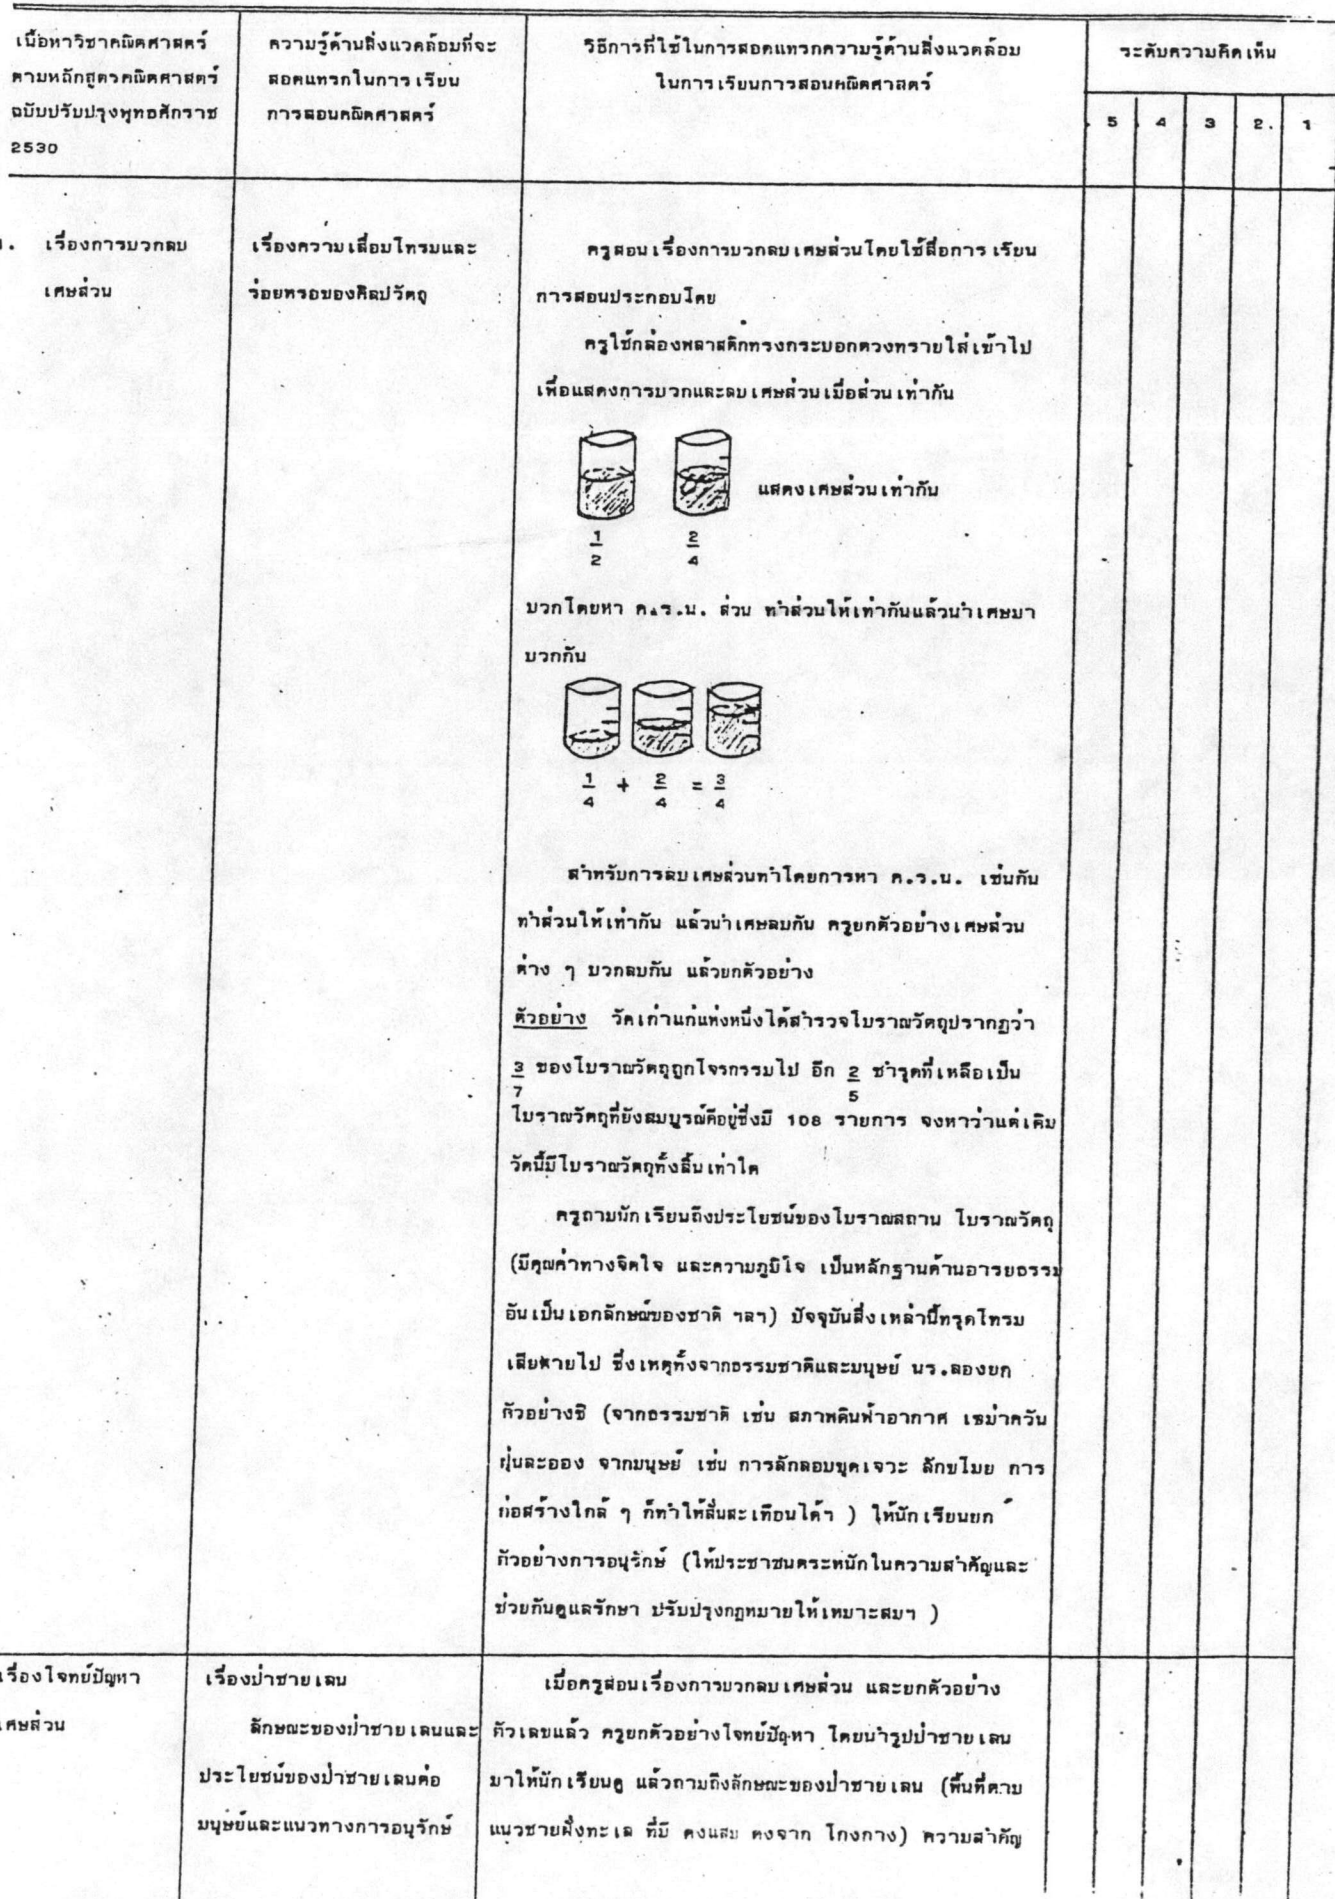 เนื้อหาวิชาคณิตศาสตร์
ตามหลักสูตรคณิตศาสตร์
ฉบับปรับปรุงพุทธศักราช
2530
ความรู้ด้านสิ่งแวดล้อมที่จะ
สอดแทรกในการเรียน
การสอนคณิตศาสตร์
วิธีการที่ใช้ในการสอดแทรกความรู้ด้านสิ่งแวดล้อม
ในการเรียนการสอนคณิตศาสตร์
ระดับความคิดเห็น
5 4 3 2. 1
เรื่องการบวกลบ
เศษส่วน
เรื่องความเสื่อมโทรมและ
ร่อยหรอของศิลปวัตถุ
ครูสอนเรื่องการบวกลบเศษส่วนโดยใช้สื่อการเรียน
การสอนประกอบโดย
ครูใช้กล่องพลาสติกทรงกระบอกตวงทรายใส่เข้าไป
เพื่อแสดงการบวกและลบเศษส่วนเมื่อส่วนเท่ากัน
แสดงเศษส่วนเท่ากัน
1/2 2/4
บวกโดยหา ค.ร.น. ส่วน ทำส่วนให้เท่ากันแล้วนำเศษมา
บวกกัน
1/4 + 2/4 = 3/4
สำหรับการลบเศษส่วนทำโดยการหา ค.ร.น. เช่นกัน
ทำส่วนให้เท่ากัน แล้วนำเศษลบกัน ครูยกตัวอย่างเศษส่วน
ต่าง ๆ บวกลบกัน แล้วยกตัวอย่าง
ตัวอย่าง วัดเก่าแก่แห่งหนึ่งได้สำรวจโบราณวัตถุปรากฏว่า
3/7 ของโบราณวัตถุถูกโจรกรรมไป อีก 2/5 ชำรุดที่เหลือเป็น
โบราณวัตถุที่ยังสมบูรณ์ดีอยู่ซึ่งมี 108 รายการ จงหาว่าแต่เดิม
วัดนี้มีโบราณวัตถุทั้งสิ้นเท่าใด
ครูถามนักเรียนถึงประโยชน์ของโบราณสถาน โบราณวัตถุ
(มีคุณค่าทางจิตใจ และความภูมิใจ เป็นหลักฐานด้านอารยธรรม
อันเป็นเอกลักษณ์ของชาติ ฯลฯ) ปัจจุบันสิ่งเหล่านี้ทรุดโทรม
เสียหายไป ซึ่งเหตุทั้งจากธรรมชาติและมนุษย์ นร.ลองยก
ตัวอย่างซิ (จากธรรมชาติ เช่น สภาพดินฟ้าอากาศ เขม่าควัน
ฝุ่นละออง จากมนุษย์ เช่น การลักลอบขุดเจาะ ลักขโมย การ
ก่อสร้างใกล้ ๆ ก็ทำให้สั่นสะเทือนได้ฯ ) ให้นักเรียนยก
ตัวอย่างการอนุรักษ์ (ให้ประชาชนตระหนักในความสำคัญและ
ช่วยกันดูแลรักษา ปรับปรุงกฎหมายให้เหมาะสมฯ )
เรื่องโจทย์ปัญหา
เศษส่วน
เรื่องป่าชายเลน
ลักษณะของป่าชายเลนและ
ประโยชน์ของป่าชายเลนต่อ
มนุษย์และแนวทางการอนุรักษ์
เมื่อครูสอนเรื่องการบวกลบเศษส่วน และยกตัวอย่าง
ตัวเลขแล้ว ครูยกตัวอย่างโจทย์ปัญหา โดยนำรูปป่าชายเลน
มาให้นักเรียนดู แล้วถามถึงลักษณะของป่าชายเลน (พื้นที่ตาม
แนวชายฝั่งทะเล ที่มี ดงแสม ดงจาก โกงกาง) ความสำคัญ